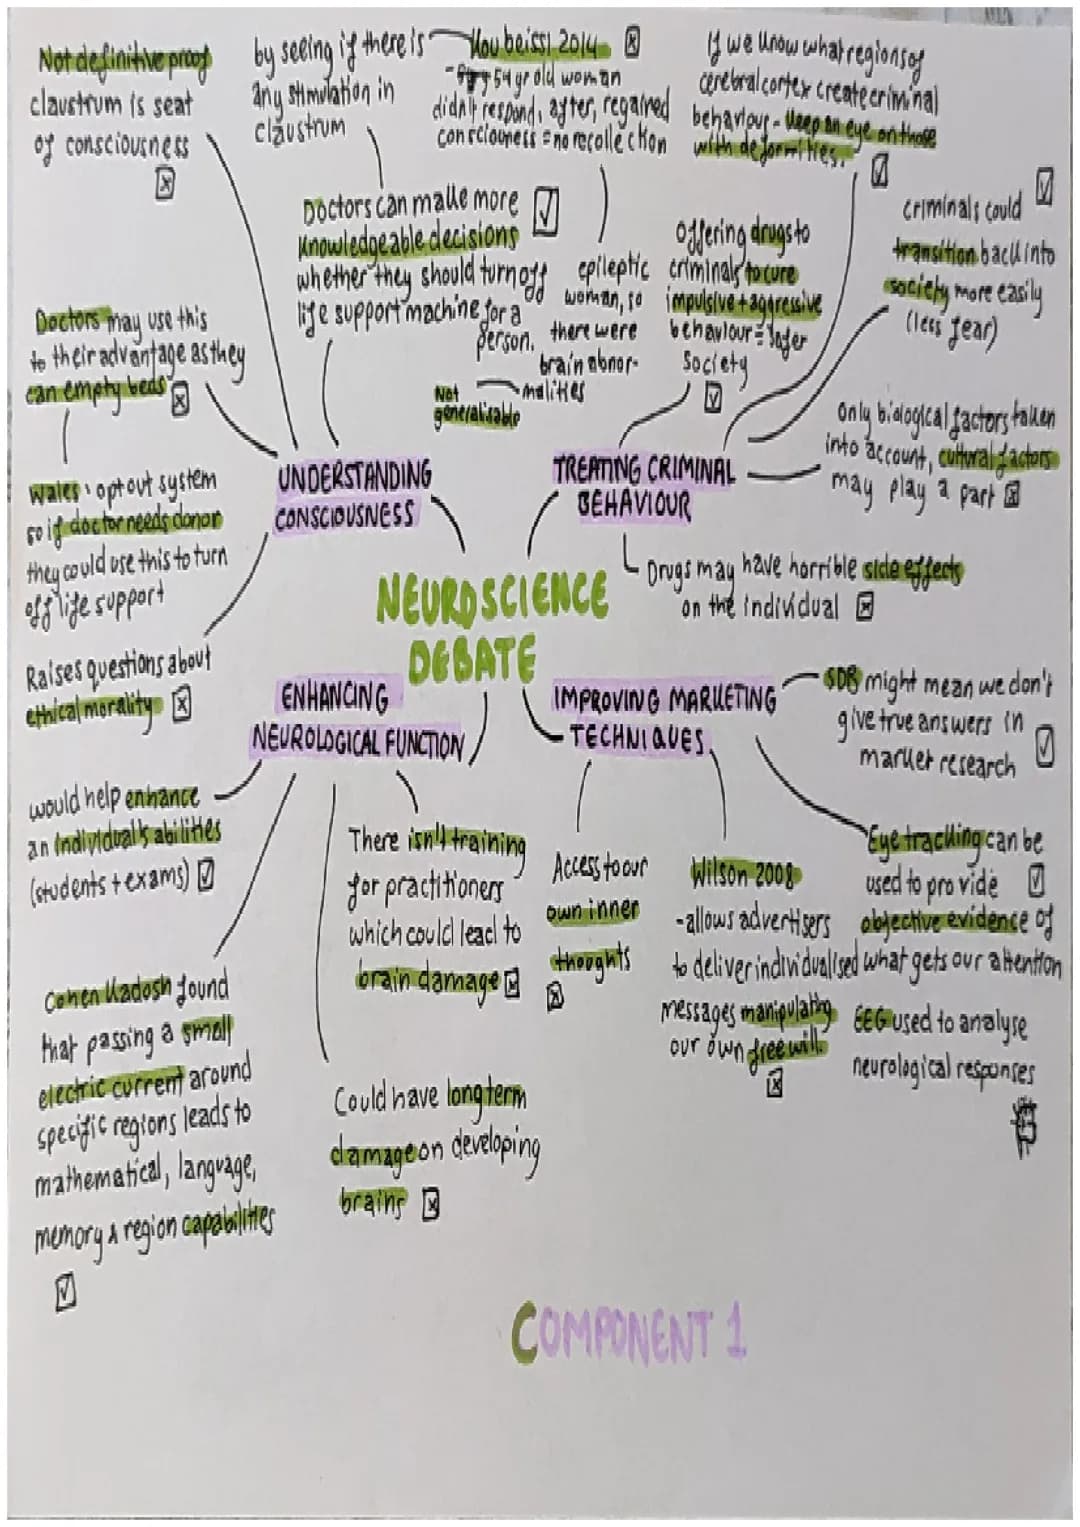 Not definitive proof
claustrum is seat
of consciousness
by seeing if there is
any stimulation in
claustrum
Koubeissi 2014
54 yr old woman
didn't respond, after, regained
consciouness = no recollection
If we know what regions of
cerebral cortex create criminal
behaviour - keep an eye on those
with deformities.
Doctors can make more
knowledgeable decisions
whether they should turn off
life support machine for a
person.
epileptic
woman, so
there were
brain abnor-
malities
Not
generalisable
Offering drugs to
criminals to cure
impulsive + aggressive
behaviour = safer
society
criminals could
transition back into
society more easily
(less fear)
Doctors may use this
to their advantage as they
can empty beds
Only biological factors taken
into account, cultural factors
may play a part
Wales: opt out system
so if doctor needs donor
they could use this to turn
off life support
UNDERSTANDING
CONSCIOUSNESS
TREATING CRIMINAL
BEHAVIOUR
Drugs may have horrible side effects
on the individual
NEUROSCIENCE
DEBATE
Raises questions about
ethical morality
ENHANCING
NEUROLOGICAL FUNCTION
IMPROVING MARKETING
TECHNIQUES.
SDB might mean we don't
give true answers in
market research
would help enhance
an individual's abilities
(students + exams)
There isn't training
for practitioners
which could lead to
brain damage
Access to our
own inner
thoughts
Wilson 2008
-allows advertisers
to deliver individualised
messages manipulating
our own free will.
Eye tracking can be
used to provide
objective evidence of
what gets our attention
EEG used to analyse
neurological responses
Cohen Kadosh found
that passing a small
electric current around
specific regions leads to
mathematical, language,
memory & region capabilities
Could have long term
damage on developing
brains
COMPONENT 1